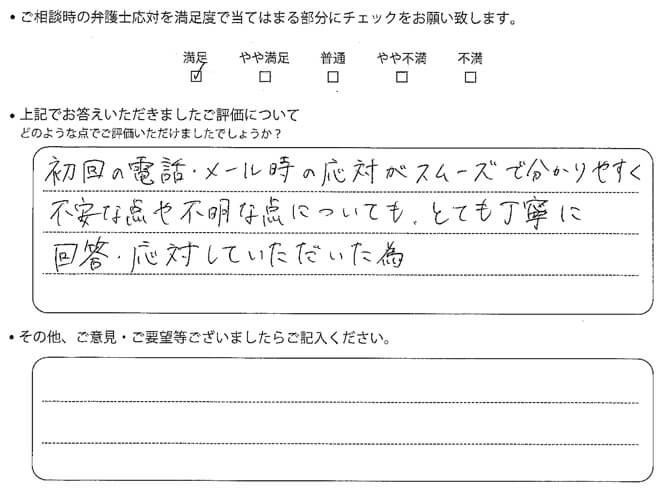 • ご相談時の弁護士応対を満足度で当てはまる部分にチェックをお願い致します。
満足 やや満足 普通 やや不満 不満
☑ □ □ □ □
• 上記でお答えいただきましたご評価について
どのような点でご評価いただけましたでしょうか？
初回の電話・メール時の応対がスムーズで分かりやすく
不安な点や不明な点についても、とても丁寧に
回答・応対していただいた為
• その他、ご意見・ご要望等ございましたらご記入ください。